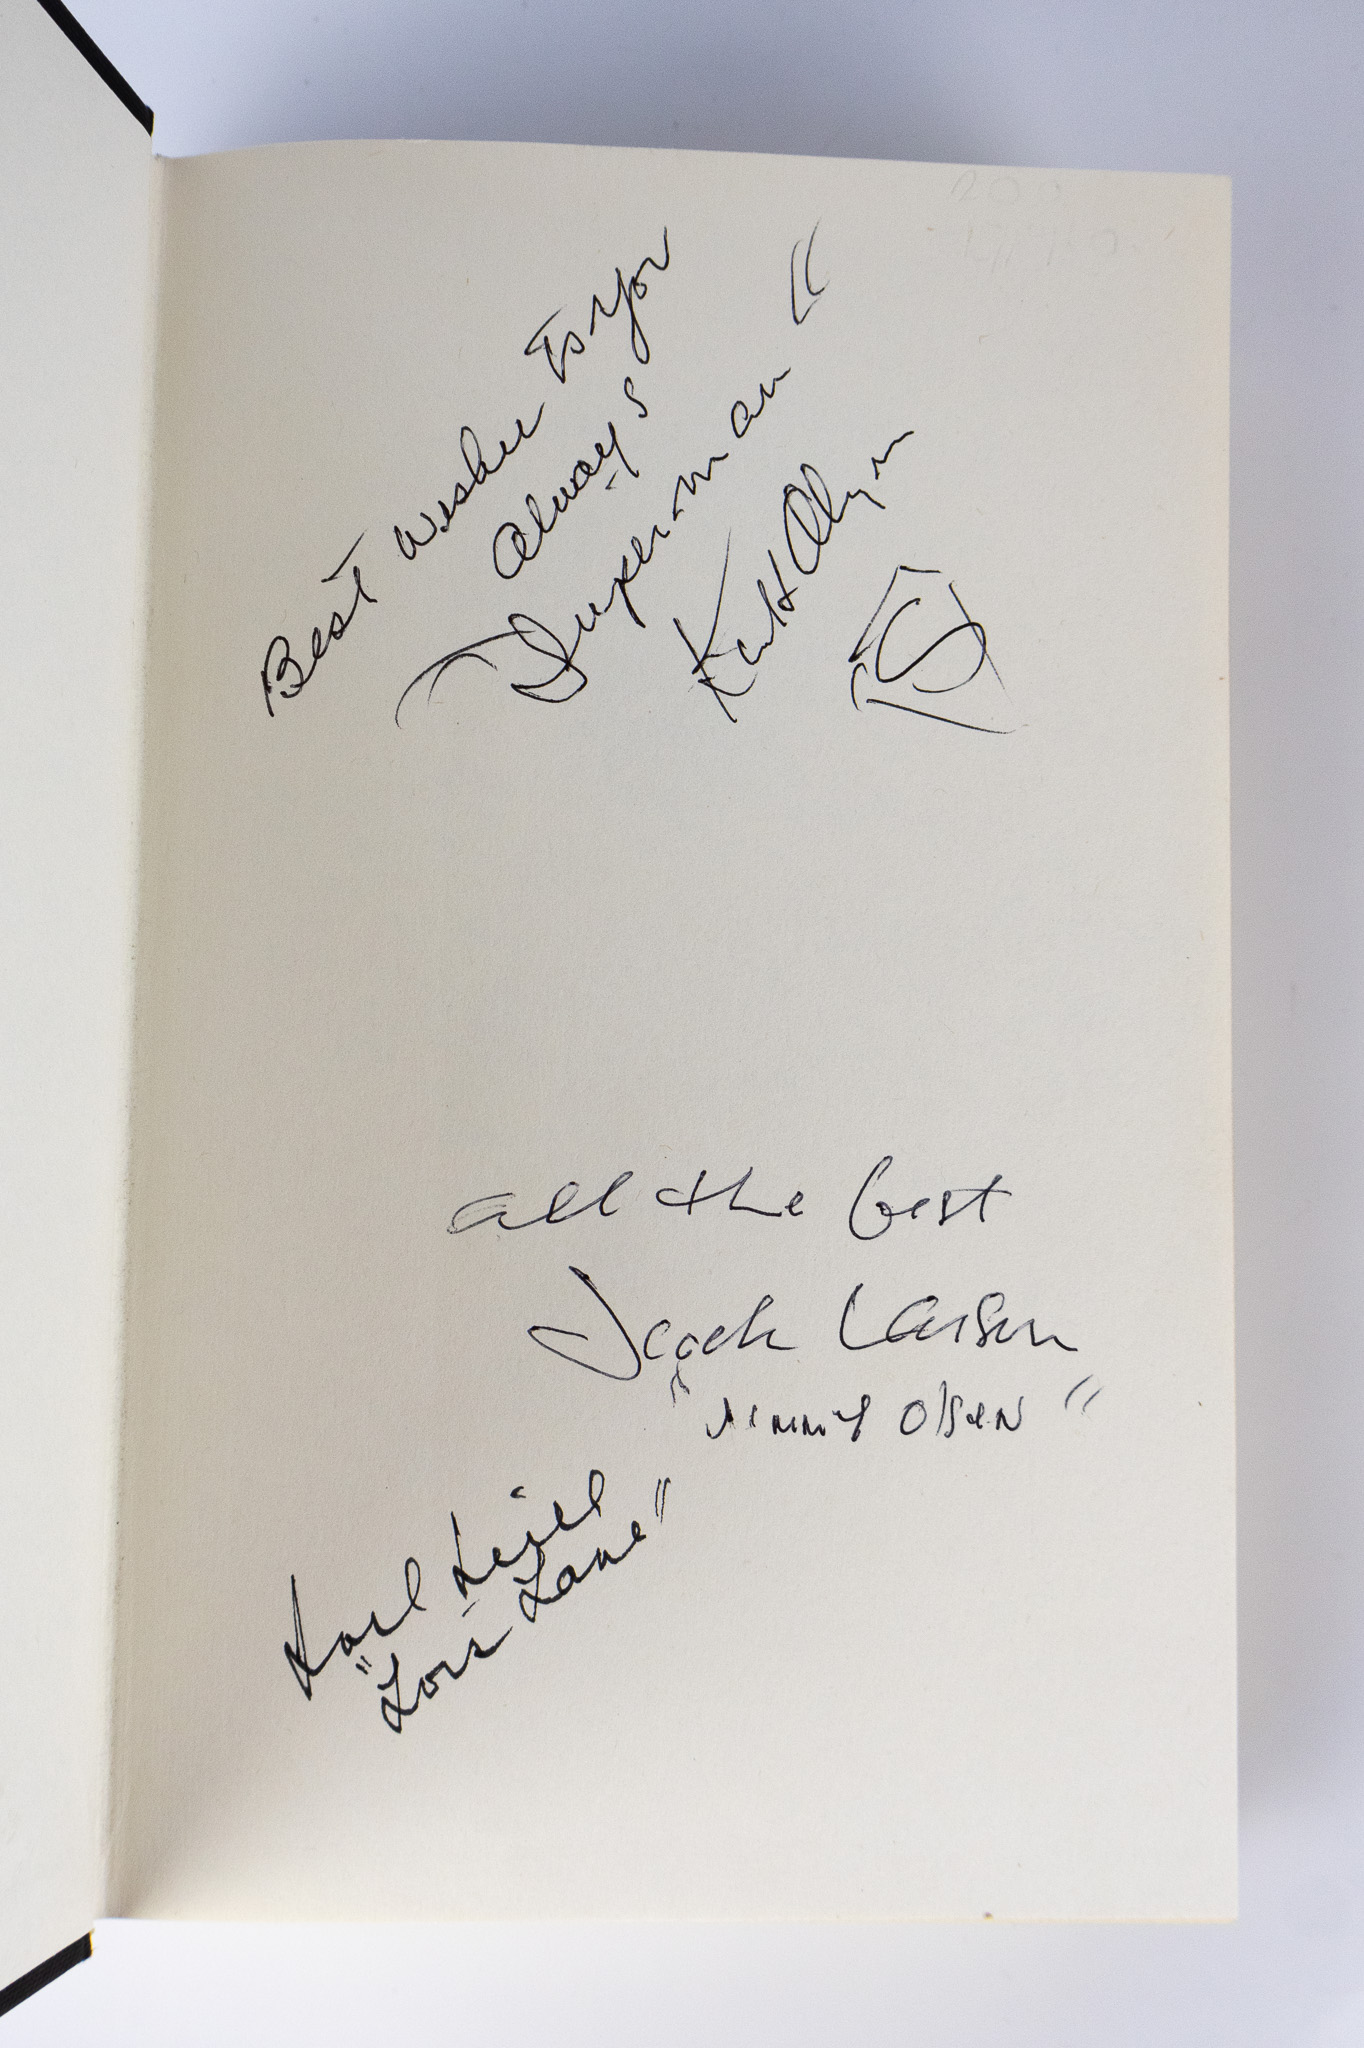 Best Wishes To You
Always
"Superman"
Kirk Alyn
S
all the best
Jack Larson
"Jimmy Olsen"
Noel Neill
"Lois Lane"